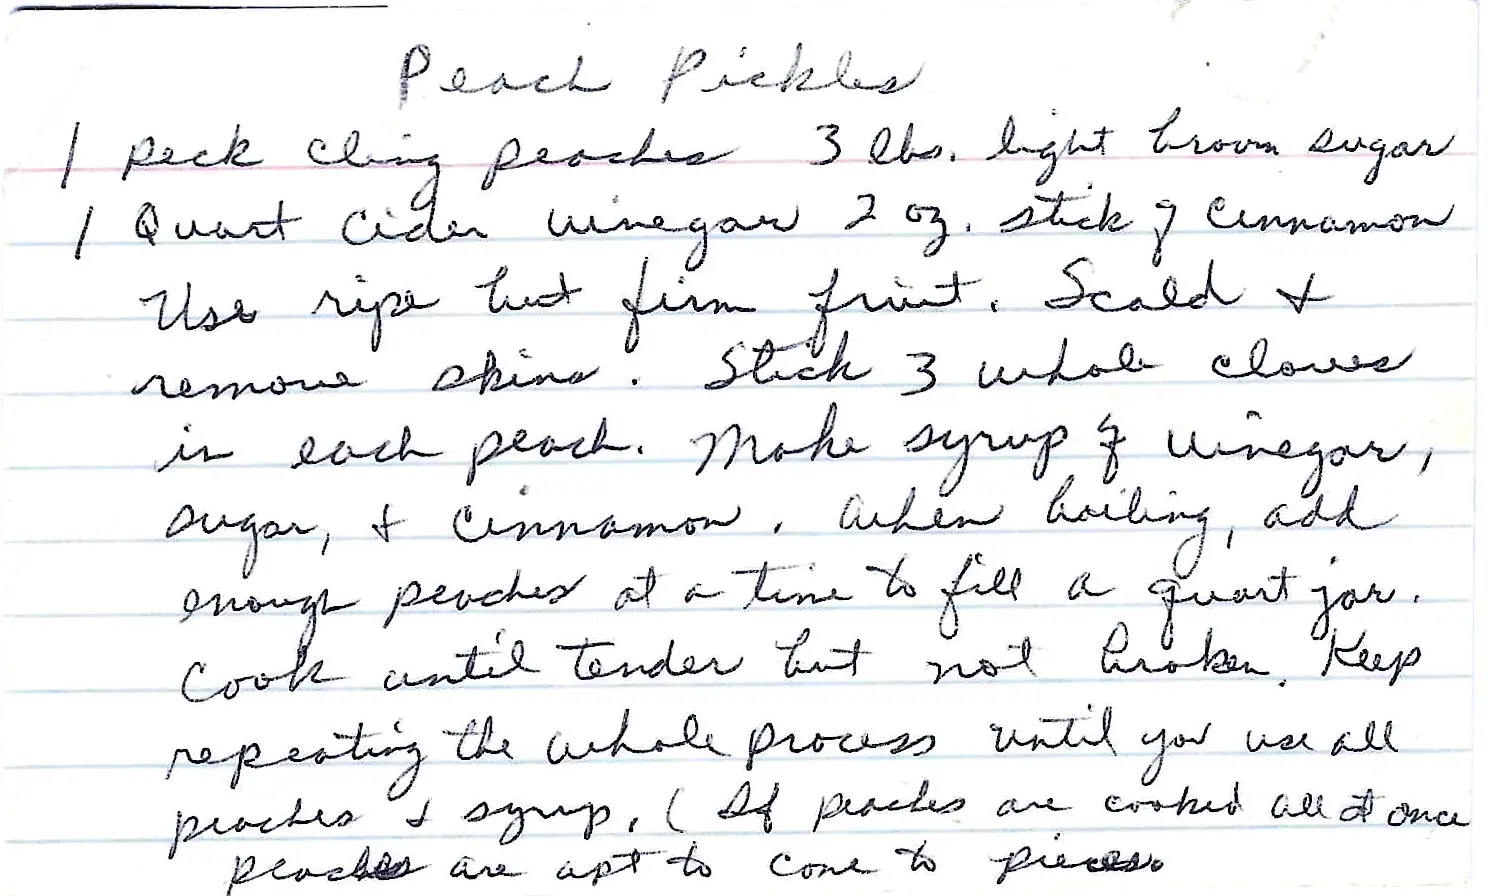 Peach Pickles
1 peck cling peaches 3 lbs. light brown sugar
1 Quart Cider vinegar 2 oz. stick of Cinnamon
Use ripe but firm fruit. Scald &
remove skins. Stick 3 whole cloves
in each peach. Make syrup of vinegar,
sugar, & cinnamon. When boiling, add
enough peaches at a time to fill a quart jar.
Cook until tender but not broken. Keep
repeating the whole process until you use all
peaches & syrup. (If peaches are cooked all at once
peaches are apt to come to pieces.